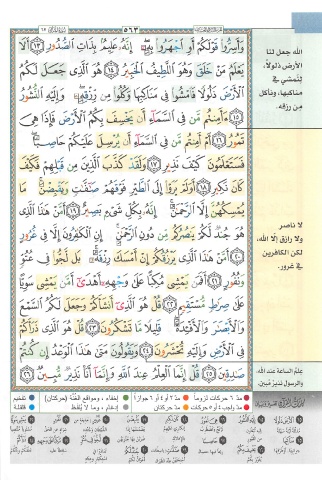 ٥٦٣
وَأَسِرُّوا۟ قَوْلَكُمْ أَوِ ٱجْهَرُوا۟ بِهِۦٓ إِنَّهُۥ عَلِيمٌۢ بِذَاتِ ٱلصُّدُورِ ١٣ أَلَا
يَعْلَمُ مَنْ خَلَقَ وَهُوَ ٱللَّطِيفُ ٱلْخَبِيرُ ١٤ هُوَ ٱلَّذِى جَعَلَ لَكُمُ
ٱلْأَرْضَ ذَلُولًا فَٱمْشُوا۟ فِى مَنَاكِبِهَا وَكُلُوا۟ مِن رِّزْقِهِۦ وَإِلَيْهِ ٱلنُّشُورُ
١٥ ءَأَمِنتُم مَّن فِى ٱلسَّمَآءِ أَن يَخْسِفَ بِكُمُ ٱلْأَرْضَ فَإِذَا هِىَ
تَمُورُ ١٦ أَمْ أَمِنتُم مَّن فِى ٱلسَّمَآءِ أَن يُرْسِلَ عَلَيْكُمْ حَاصِبًا
فَسَتَعْلَمُونَ كَيْفَ نَذِيرِ ١٧ وَلَقَدْ كَذَّبَ ٱلَّذِينَ مِن قَبْلِهِمْ فَكَيْفَ
كَانَ نَكِيرِ ١٨ أَوَلَمْ يَرَوْا۟ إِلَى ٱلطَّيْرِ فَوْقَهُمْ صَٰٓفَّٰتٍ وَيَقْبِضْنَ مَا
يُمْسِكُهُنَّ إِلَّا ٱلرَّحْمَٰنُ إِنَّهُۥ بِكُلِّ شَىْءٍۭ بَصِيرٌ ١٩ أَمَّنْ هَٰذَا ٱلَّذِى
هُوَ جُندٌ لَّكُمْ يَنصُرُكُم مِّن دُونِ ٱلرَّحْمَٰنِ إِنِ ٱلْكَٰفِرُونَ إِلَّا فِى غُرُورٍ
٢٠ أَمَّنْ هَٰذَا ٱلَّذِى يَرْزُقُكُمْ إِنْ أَمْسَكَ رِزْقَهُۥ بَل لَّجُّوا۟ فِى عُتُوٍّ
وَنُفُورٍ ٢١ أَفَمَن يَمْشِى مُكِبًّا عَلَىٰ وَجْهِهِۦٓ أَهْدَىٰٓ أَمَّن يَمْشِى سَوِيًّا
عَلَىٰ صِرَٰطٍ مُّسْتَقِيمٍ ٢٢ قُلْ هُوَ ٱلَّذِىٓ أَنشَأَكُمْ وَجَعَلَ لَكُمُ ٱلسَّمْعَ
وَٱلْأَبْصَٰرَ وَٱلْأَفْـِٔدَةَ قَلِيلًا مَّا تَشْكُرُونَ ٢٣ قُلْ هُوَ ٱلَّذِى ذَرَأَكُمْ
فِى ٱلْأَرْضِ وَإِلَيْهِ تُحْشَرُونَ ٢٤ وَيَقُولُونَ مَتَىٰ هَٰذَا ٱلْوَعْدُ إِن كُنتُمْ
صَٰدِقِينَ ٢٥ قُلْ إِنَّمَا ٱلْعِلْمُ عِندَ ٱللَّهِ وَإِنَّمَآ أَنَا۠ نَذِيرٌ مُّبِينٌ ٢٦
الله جعل لنا
الأرض ذلولاً،
لنمشي في
مناكبها، ونأكل
من رزقه.
لا ناصر
ولا رازق إلا الله،
لكن الكافرين
في غرور.
علم الساعة عند الله،
والرسول نذير مُبين.
مدّ ٦ حركات لزوماً
مدّ ٢ أو ٤ أو ٦ جوازاً
إخفاء، ومواقع الغُنَّة (حركتان)
تفخيم
مدّ واجب ٤ أو ٥ حركات
مدّ حركتان
إدغام، وما لا يُلفظ
قلقلة